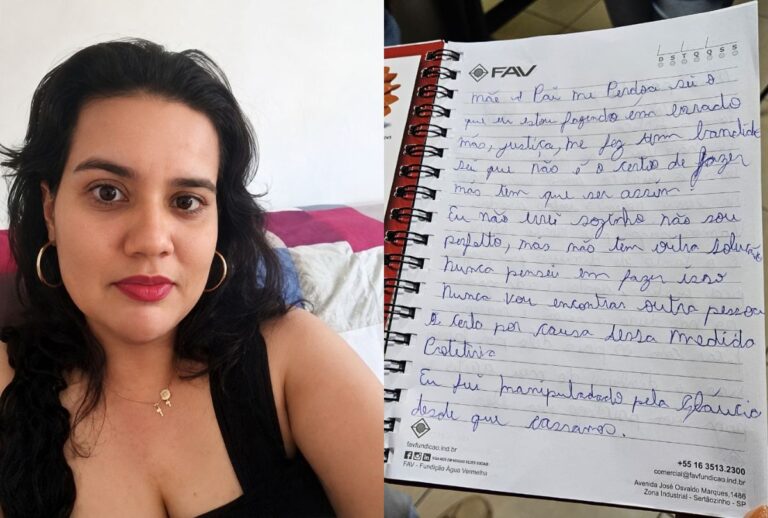 FAV
D S T Q Q S S
mãe e Pai me Perdoa sei o
que eu estou fazendo é errado
mas, justiça, me fez um bandido
sei que não é o certo de fazer
mas tem que ser assim
Eu não irei sozinho não sou
perfeito, mas não tem outra solução
Nunca pensei em fazer isso
Nunca vou encontrar outra pessoa
e certo por causa dessa medida
Protetiva
Eu fui manipulado pela Gláucia
desde que cassamos.
favfundicao.ind.br
FAV - Fundição Água Vermelha
+55 16 3513.2300
comercial@favfundicao.ind.br
Avenida José Osvaldo Marques, 1486
Zona Industrial - Sertãozinho - SP